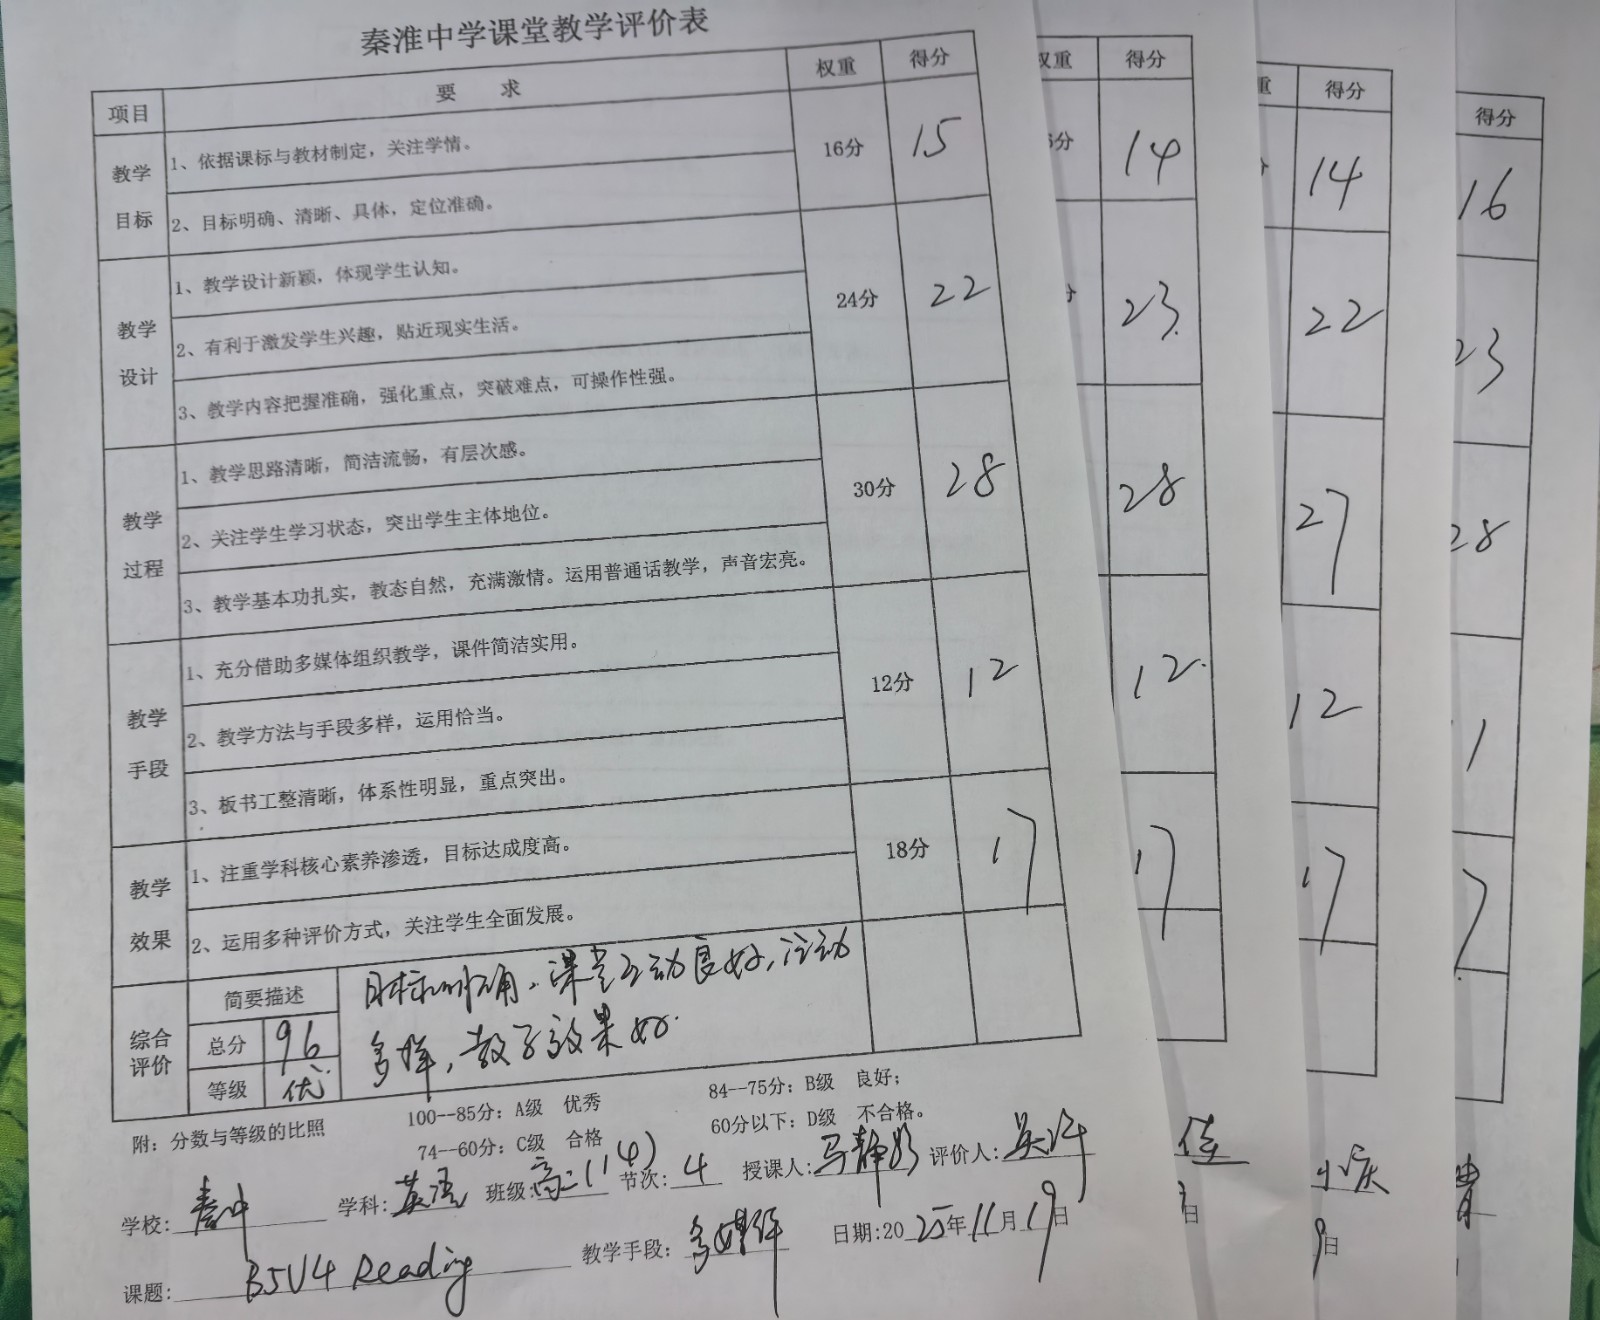 秦淮中学课堂教学评价表
项目 要 求 权重 得分
教学目标 1、依据课标与教材制定，关注学情。 16分 15
2、目标明确、清晰、具体，定位准确。
教学设计 1、教学设计新颖，体现学生认知。 24分 22
2、有利于激发学生兴趣，贴近现实生活。
3、教学内容把握准确，强化重点，突破难点，可操作性强。
教学过程 1、教学思路清晰，简洁流畅，有层次感。 30分 28
2、关注学生学习状态，突出学生主体地位。
3、教学基本功扎实，教态自然，充满激情。运用普通话教学，声音宏亮。
教学手段 1、充分借助多媒体组织教学，课件简洁实用。 12分 12
2、教学方法与手段多样，运用恰当。
3、板书工整清晰，体系性明显，重点突出。
教学效果 1、注重学科核心素养渗透，目标达成度高。 18分 17
2、运用多种评价方式，关注学生全面发展。
综合评价 简要描述 目标明确，课堂互动良好，活动
总分 96 多样，教学效果好.
等级 优
附：分数与等级的比照 100--85分：A级 优秀 84--75分：B级 良好；
74--60分：C级 合格 60分以下：D级 不合格。
学校: 秦中 学科: 英语 班级: 高二(14) 节次: 4 授课人: 马静 评价人: 吴
课题: B5U4 Reading 教学手段: 多媒体 日期:2025年11月19日
权重 得分
分 14
分 23.
28
12.
17
佳
日
重 得分
14
22
27
12
17
小庆
9日
得分
16
23
28
1
7